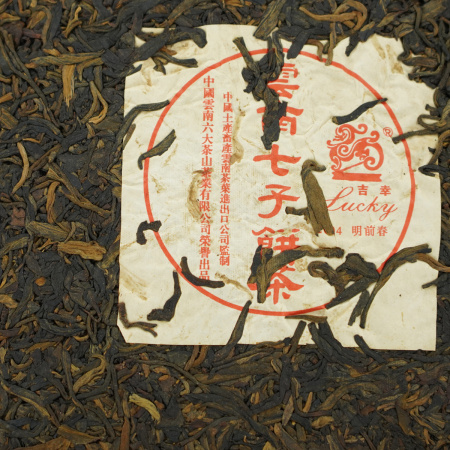 ®
吉幸
Lucky
4 明前春
雲南七子餅茶
中國土產畜產雲南茶葉進出口公司監制
中國雲南六大茶山茶業有限公司榮譽出品